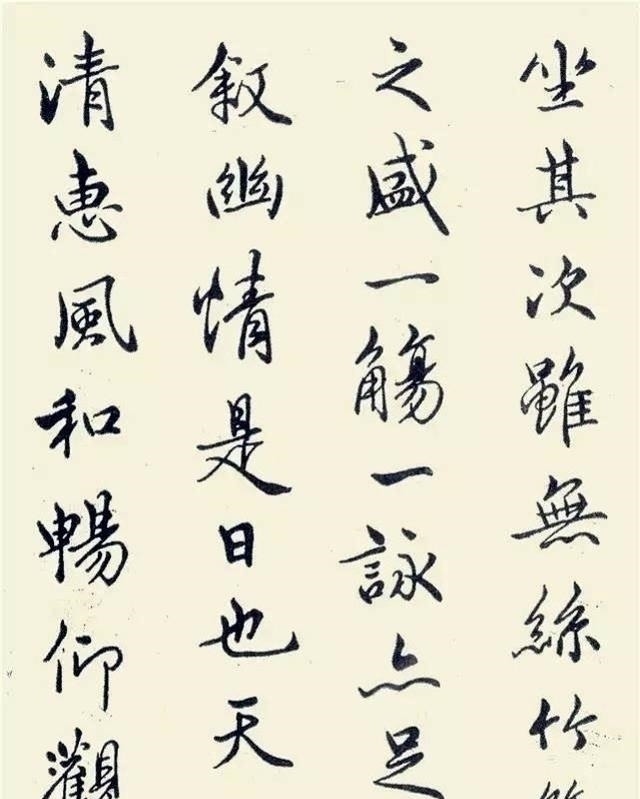 坐其次雖無絲竹
之盛一觴一詠亦足
叙幽情是日也天
清惠風和暢仰觀